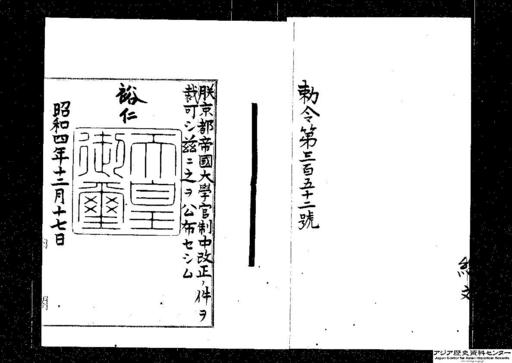 勅令第三百五十二號
朕京都帝國大學官制中改正ノ件ヲ
裁可シ茲ニ之ヲ公布セシム
裕仁
天皇
御璽
昭和四年十二月十七日
アジア歴史資料センター
Japan Center for Asian Historical Records